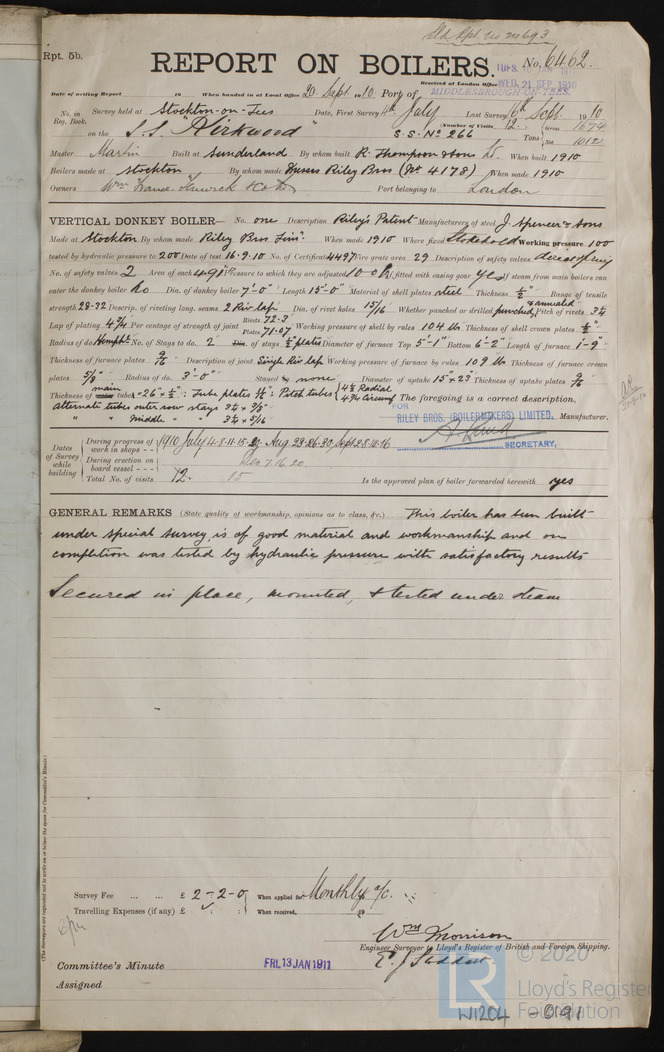 Sld Rpt. no 
Rpt. 5b.
REPORT ON BOILERS.
No. 6462.
TUES. JAN 1911
WED. 21 SEP. 1910
Received at London Office
Date of writing Report 19 When handed in at Local Office 20 Sept. 1910. Port of MIDDLESBROUGH-ON-TEES.
No. in Reg. Book. Survey held at Stockton-on-Tees Date, First Survey 4th July Last Survey Sept. 1910
(Number of Visits 12.)
on the S.S. "Kirkwood" S.S. No 266 Tons
Master Martin Built at Sunderland By whom built R. Thompson & Sons Ld. When built 1910
Boilers made at Stockton By whom made Messrs Riley Bros (No. 4178) When made 1910
Owners Port belonging to London
VERTICAL DONKEY BOILER— No. one Description Riley's Patent Manufacturers of steel J. Spencer & Sons
Made at Stockton By whom made Riley Bros Limd. When made 1910 Where fixed Stokehold Working pressure 100
tested by hydraulic pressure to 200 Date of test 16-9-10 No. of Certificate 4497 Fire grate area 29 Description of safety valves direct spring
No. of safety valves 2 Area of each 4.91" Pressure to which they are adjusted 100 lb. fitted with easing gear yes If steam from main boilers can
enter the donkey boiler No Dia. of donkey boiler 7'-0" Length 15'-0" Material of shell plates steel Thickness ½" Range of tensile
strength 28-32 Descrip. of riveting long. seams 2 Riv lap Dia. of rivet holes 15/16 Whether punched or drilled punched & annealed Pitch of rivets 3¼
Lap of plating 4¾ Per centage of strength of joint Rivets 72.3 Plates 71.07 Working pressure of shell by rules 104 lb Thickness of shell crown plates ½"
Radius of do. Hemphl. No. of Stays to do. 2 Dia. of stays ½" plates Diameter of furnace Top 5'-1" Bottom 6'-2" Length of furnace 1'-9"
Thickness of furnace plates 9/16 Description of joint Single Riv lap Working pressure of furnace by rules 109 lb Thickness of furnace crown
plates 5/8" Radius of do. 3'-0" Stayed by none Diameter of uptake 15" × 23" Thickness of uptake plates 9/16
Thickness of main tubes
The foregoing is a correct description,
Alternate tubes outer row stays
" " Middle " " 3¼ × 5/16
FOR
RILEY BROS. (BOILERMAKERS) LIMITED. Manufacturer.
SECRETARY,
Dates of Survey while building
During progress of work in shops - - 1910 July 4. 8. 11. 15. Aug 23. 26. 30. Sept 2. 8. 10. 16
During erection on board vessel - - - Dec 7. 16. 20.
Total No. of visits 12. 15
Is the approved plan of boiler forwarded herewith yes
GENERAL REMARKS (State quality of workmanship, opinions as to class, &c.) This boiler has been built
under special survey, is of good material and workmanship and on
completion was tested by hydraulic pressure with satisfactory results
Secured in place, mounted, & tested under steam
(The Surveyors are requested not to write on or below the space for Committee's Minute.)
Survey Fee ... ... £ 2-2-0 When applied for, Monthly a/c.
Travelling Expenses (if any) £ : : When received, 19
Wm Morrison
Engineer Surveyor to Lloyd's Register of British and Foreign Shipping.
E. J. Stoddart.
Committee's Minute FRI. 13 JAN 1911
Assigned
LR
© 2020
Lloyd's Register
Foundation
W1204 - 0191